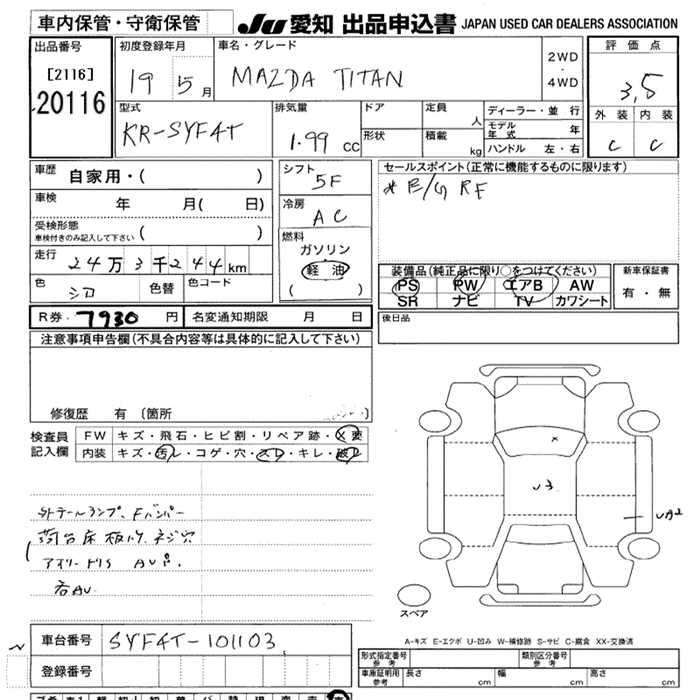 車内保管・守衛保管
JU 愛知 出品申込書 JAPAN USED CAR DEALERS ASSOCIATION
出品番号
[2116]
20116
初度登録年月
19 5月
車名・グレード
MAZDA TITAN
2WD
・
4WD
評価点
3,5
外装 内装
C C
型式
KR-SYF4T
排気量
1.99 cc
ドア
形状
定員
人
積載
kg
ディーラー・並行
モデル年式 年
ハンドル 左・右
車歴 自家用・( )
車検 年 月( 日)
受検形態
車検付きのみ記入して下さい ( )
走行 24万3千244km
色 シロ 色替 色コード
シフト
5F
冷房
AC
燃料
ガソリン
軽油
( )
セールスポイント(正常に機能するものに限ります)
装備品(純正品に限り○をつけてください)
PS PW エアB AW
SR ナビ TV カワシート
新車保証書
有・無
R券・ 7930 円 名変通知期限 月 日
後日品
注意事項申告欄(不具合内容等は具体的に記入して下さい)
修復歴 有(箇所
検査員
記入欄
FW キズ・飛石・ヒビ割・リペア跡・X要
内装 キズ・汚レ・コゲ・穴・スレ・キレ・破レ
U3
UA2
外テールランプ、Fバンパー
AU
スペア
A-キズ E-エクボ U-凹み W-補修跡 S-サビ C-腐食 XX-交換済
車台番号 SYF4T-101103
登録番号
型式指定番号
参考
類別区分番号
参考
車庫証明用
参考
長さ cm 幅 cm 高さ cm